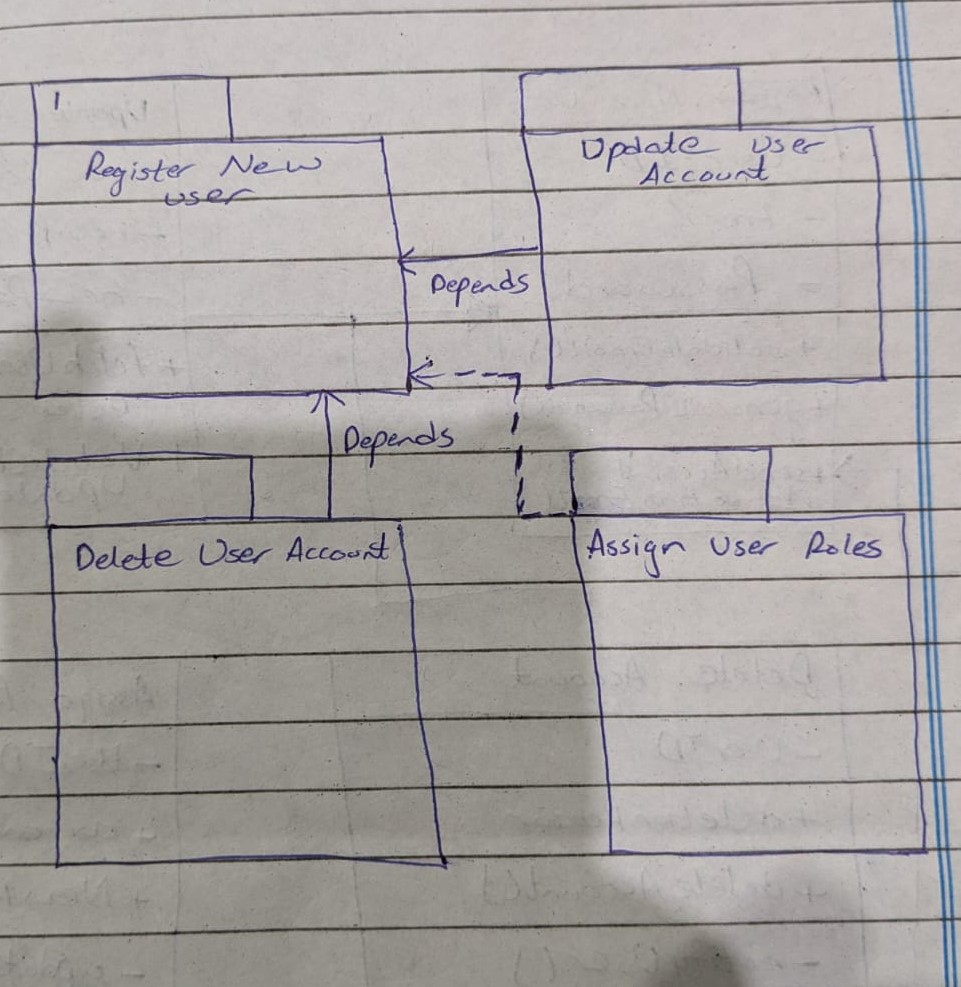 Register New
user
Update User
Account
Depends
Depends
Delete User Account
Assign User Roles